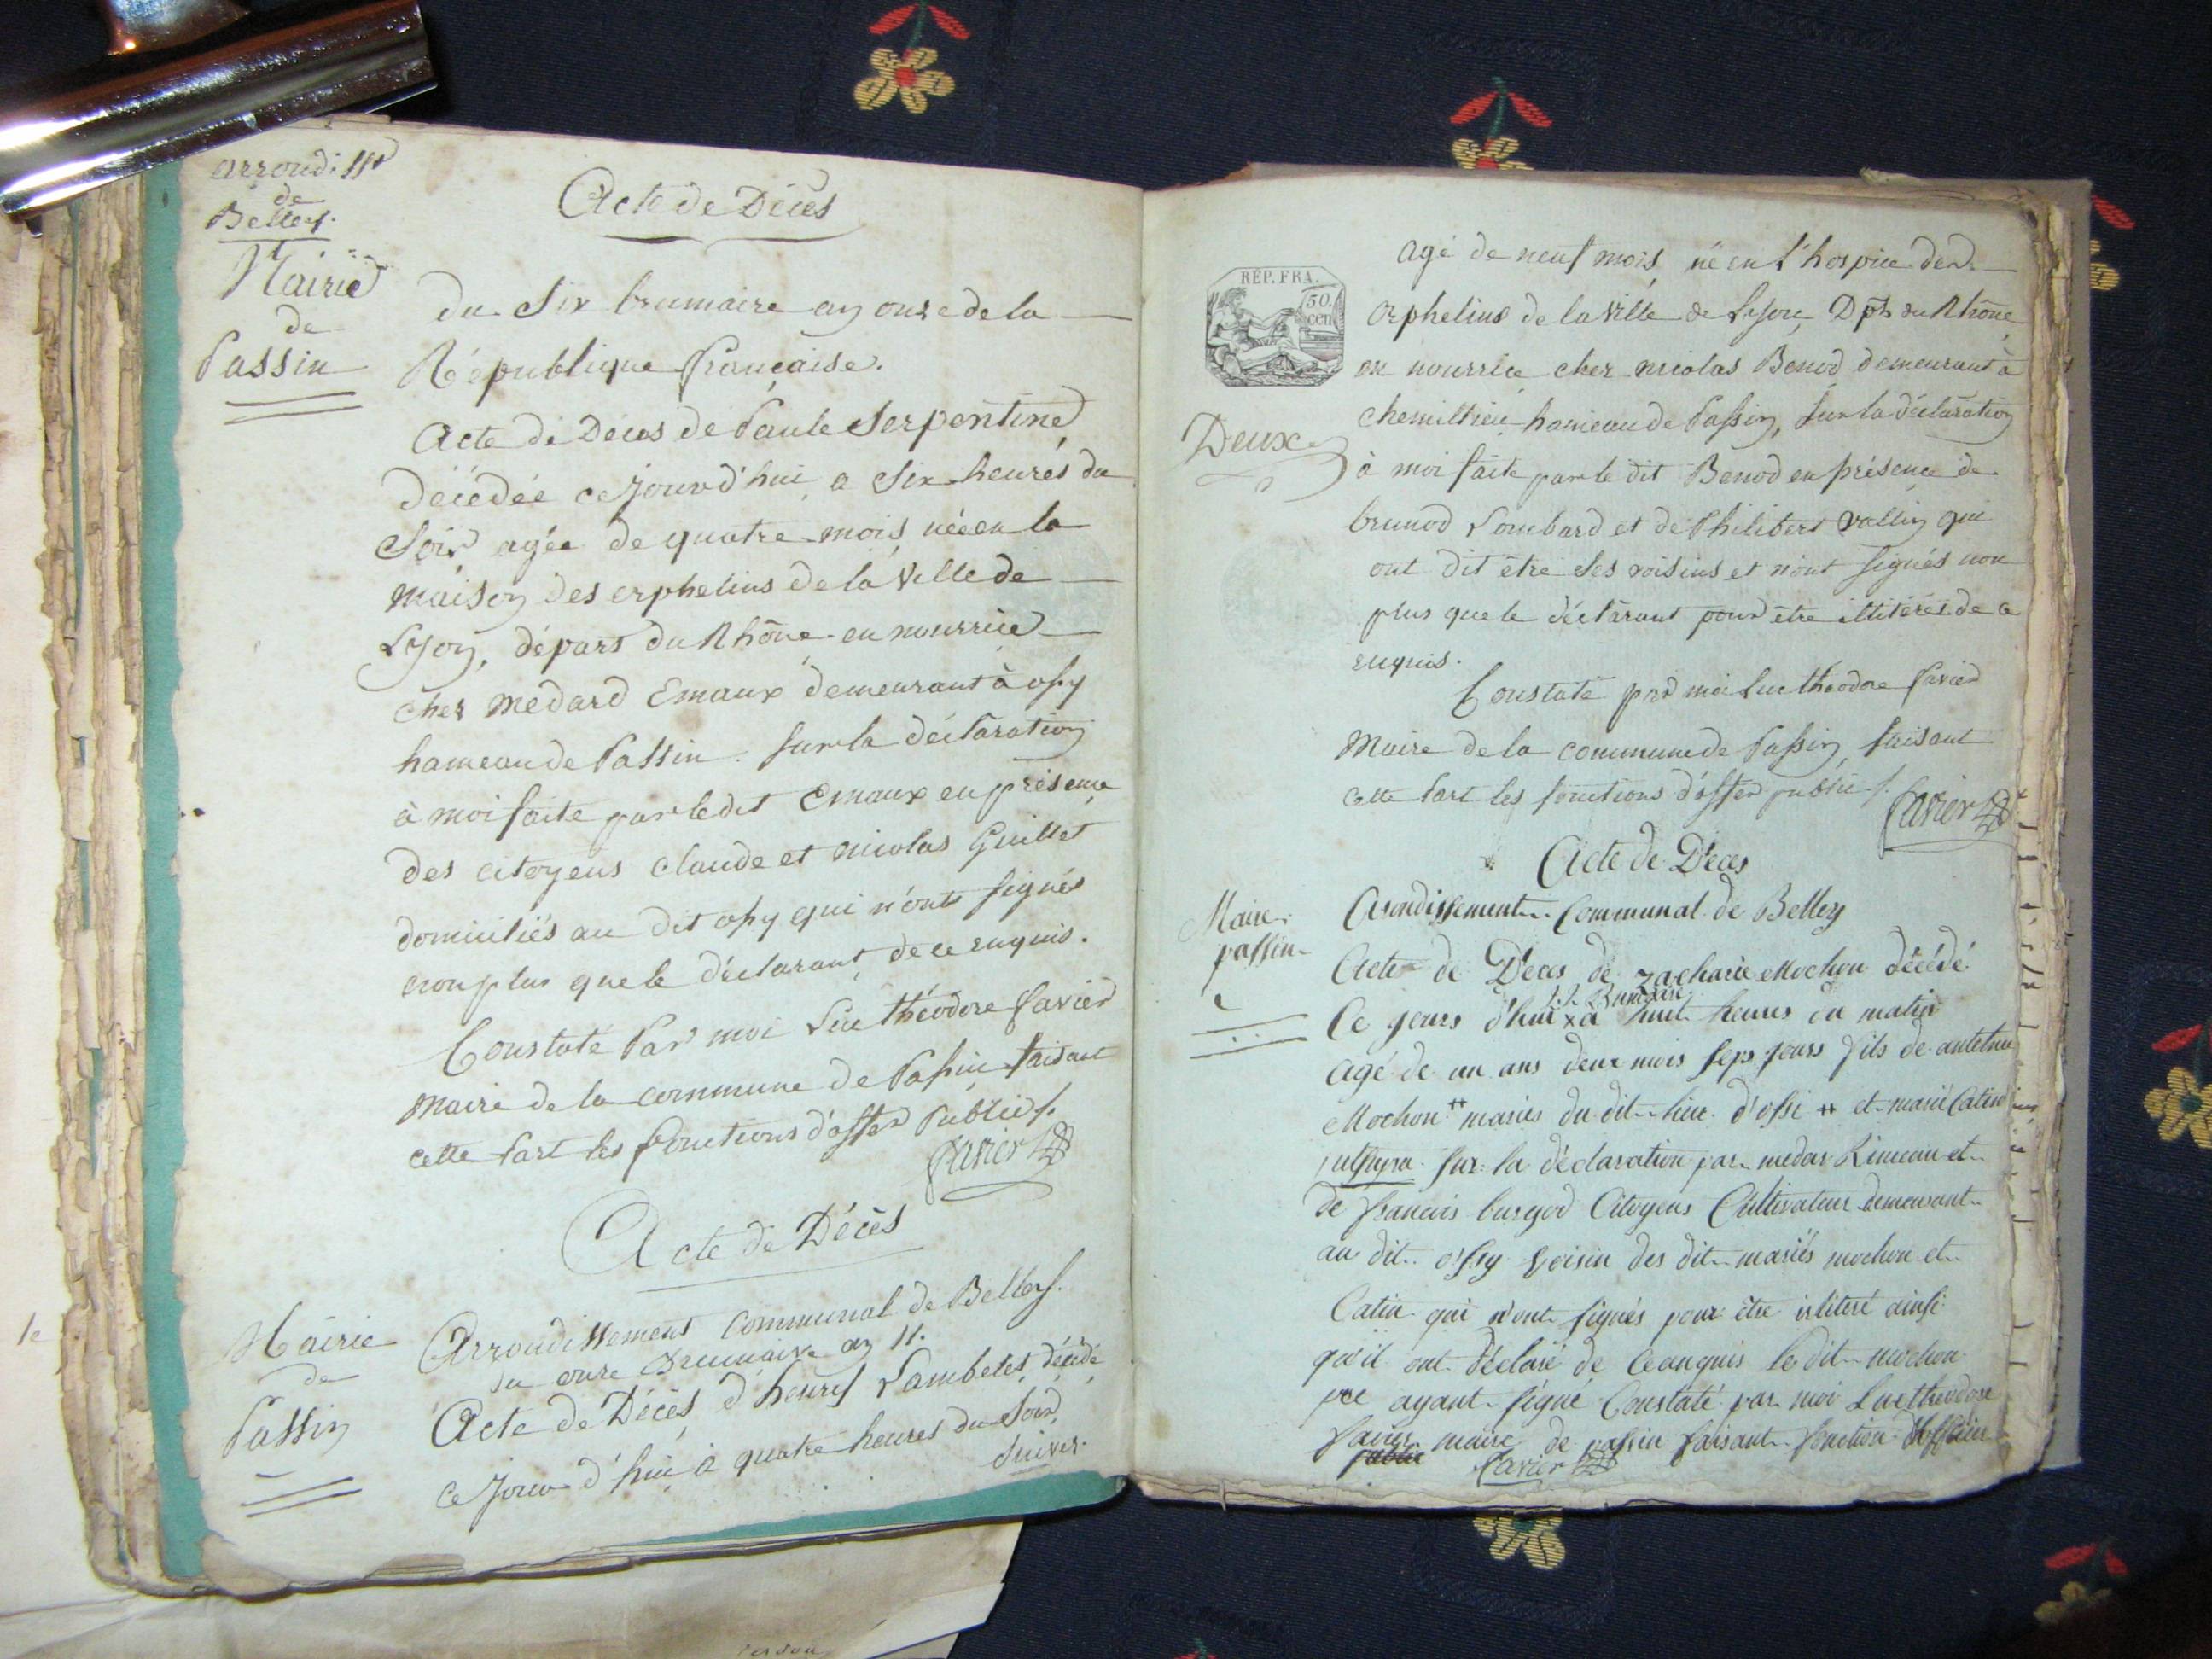 arrondisst
de
Belley.
Mairie
de
Passin
Acte de Décès
du Six brumaire an onze de la
République française.
Acte de Deces de Paule Serpentine
décédée ce jourd'hui a six heures du
Soir agée de quatre mois née en la
maison des orphelins de la Ville de
Lyon, départ du Rhône en nourrice
chez médard Emaux demeurant à ossy
hameau de Passin. Sur la déclaration
à moi faite par le dit Emaux en présence
des citoyens Claude et nicolas Guillet
domiciliés au dit ossy qui n'ont signés
non plus que le déclarant de ce enquis.
Constaté Par moi Luc théodore Favier
maire de la commune de Passin faisant
cette Part les fonctions d'offer Public /.
Favier
Acte de Décès
Mairie
de
Passin
Arrondissement Communal de Belley.
du onze Brumaire an 11.
Acte de Décès d'henry Lambeles, décédé
ce jour d'hui à quatre heures du soir,
Suiver.
agé de neuf mois né en l'hospice des
RÉP. FRA.
50.
cen
orphelins de la ville de Lyon, Dpt du Rhône
en nourrice chez nicolas Benod demeurant à
chemillieu hameau de Passin, sur la déclaration
Deux
à moi faite par le dit Benod en présence de
brunod Lombard et de Philibert vallin qui
ont dit être ses voisins et n'ont signés non
plus que le déclarant pour être illitérés de ce
enquis.
Constaté par moi Luc théodore Favier
Maire de la commune de Passin, faisant
cette Part les fonctions d'offer public /.
Favier
Acte de Deces
Maire
passin
Arondissement Communal de Belley
Acte de Deces de zacharie Mochon décédé
Brumaire
Ce jours d'hui x a huit heures du matin
agé de un ans deux mois seps jours fils de
Mochon ++ mariés du dit lieu d'ossi ++ et marie Catin
sur la déclaration par medar Rimeau et
de francois burgod Citoyens Cultivateur demeurant
au dit ossy voisin des dit mariés mochon et
Catin qui n'ont signés pour être irliteré ainsi
qu'il ont déclaré de ce anquis le dit mochon
pre ayant signé Constaté par moi Luc theodore
favier maire de passin faisant fonction d'officier
public Favier